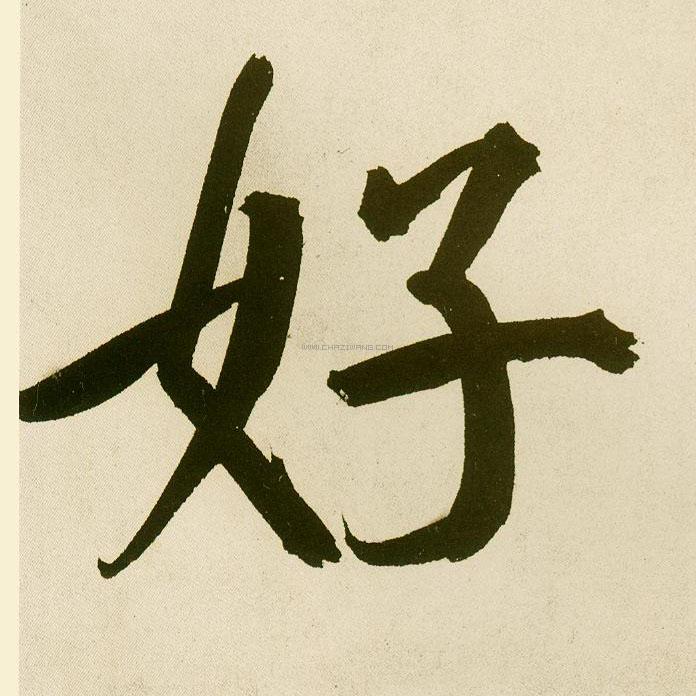 好
WWW.CHAZIWANG.COM